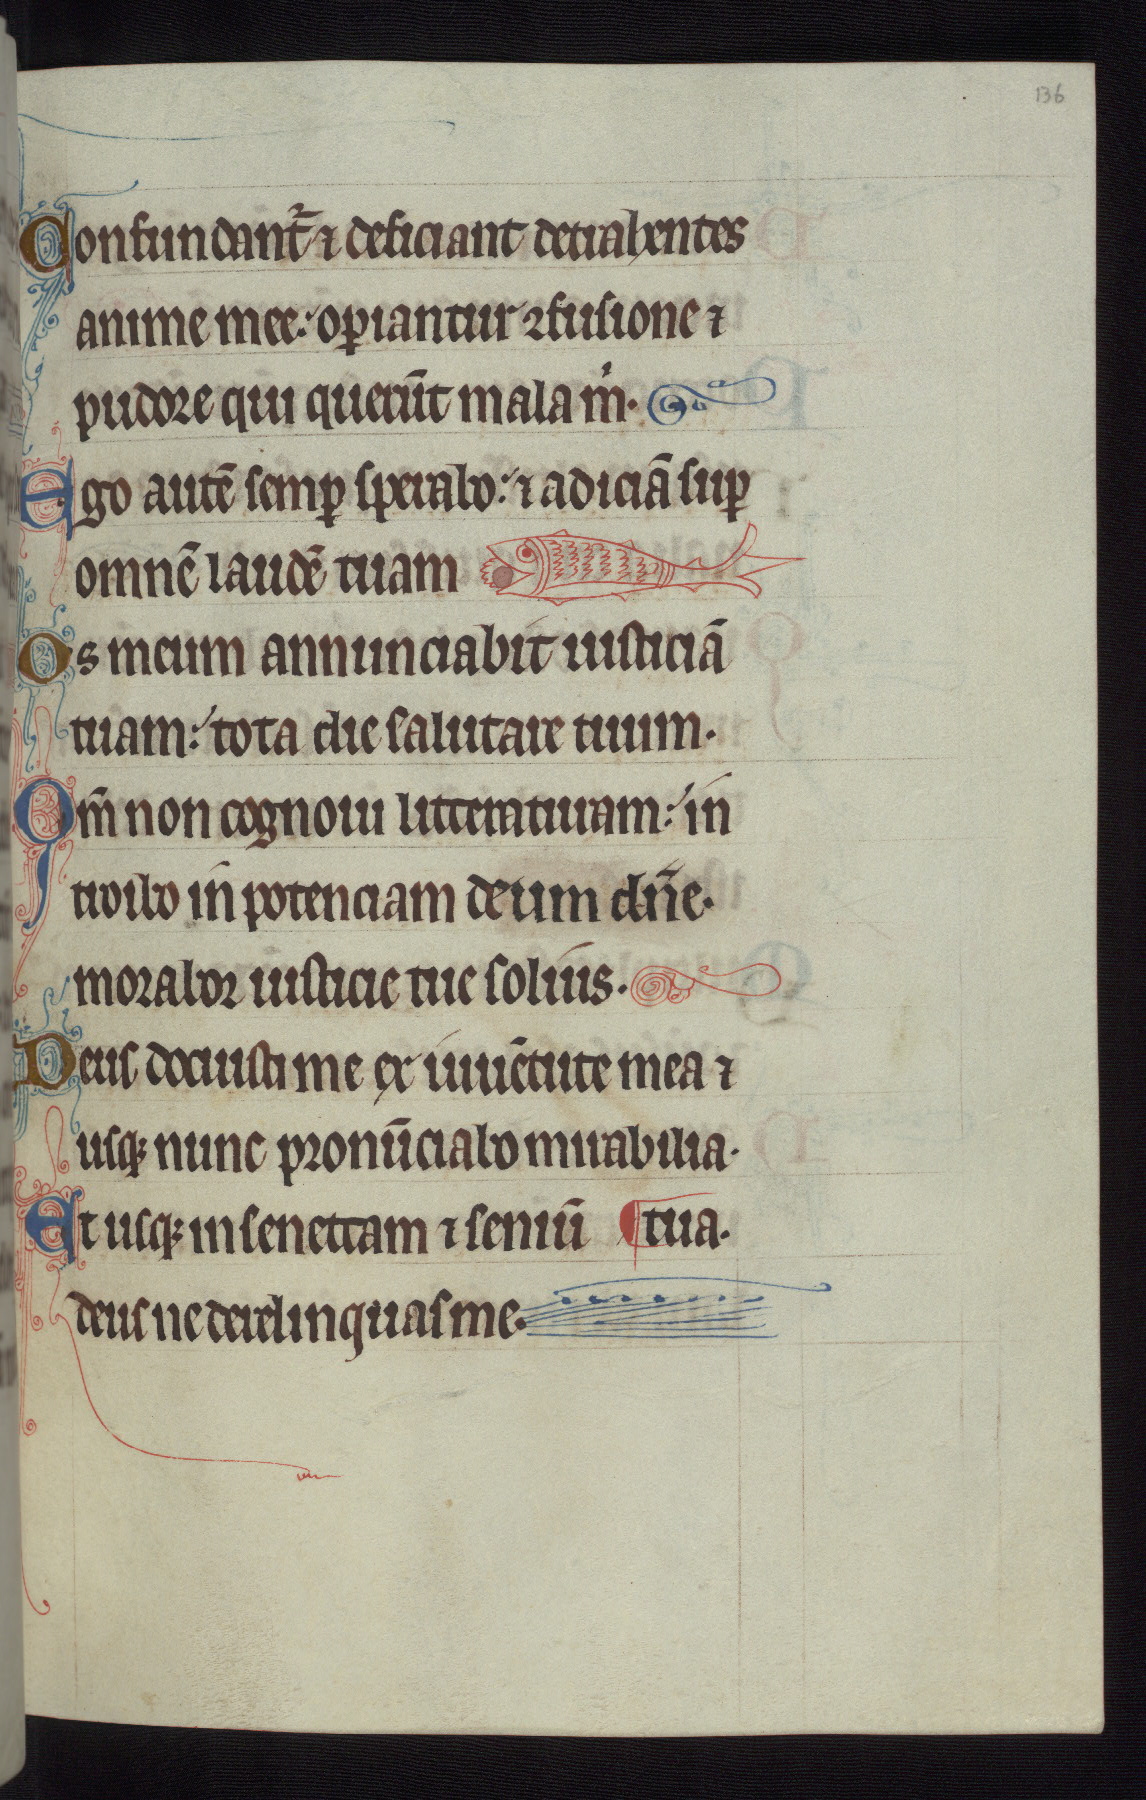 136
Confundant᷑ ⁊ deficiant detrahentes
anime mee: op̱iantur ꝯfusione ⁊
pudore qui querūt mala m̍.
Ego autē semꝑ sperabo: ⁊ adiciā suꝑ
omnē laudē tuam
Os meum annunciabit iusticiā
tuam: tota die salutare tuum.
Qm̄ non cognoui litteraturam: in
troibo in potenciam deum dn̄e.
morabor iusticie tue solius.
Deus docuisti me ex iuuētute mea ⁊
usq; nunc pronūciabo mirabilia.
Et usq; in senectam ⁊ seniū ¶ tua.
deus ne derelinquas me.